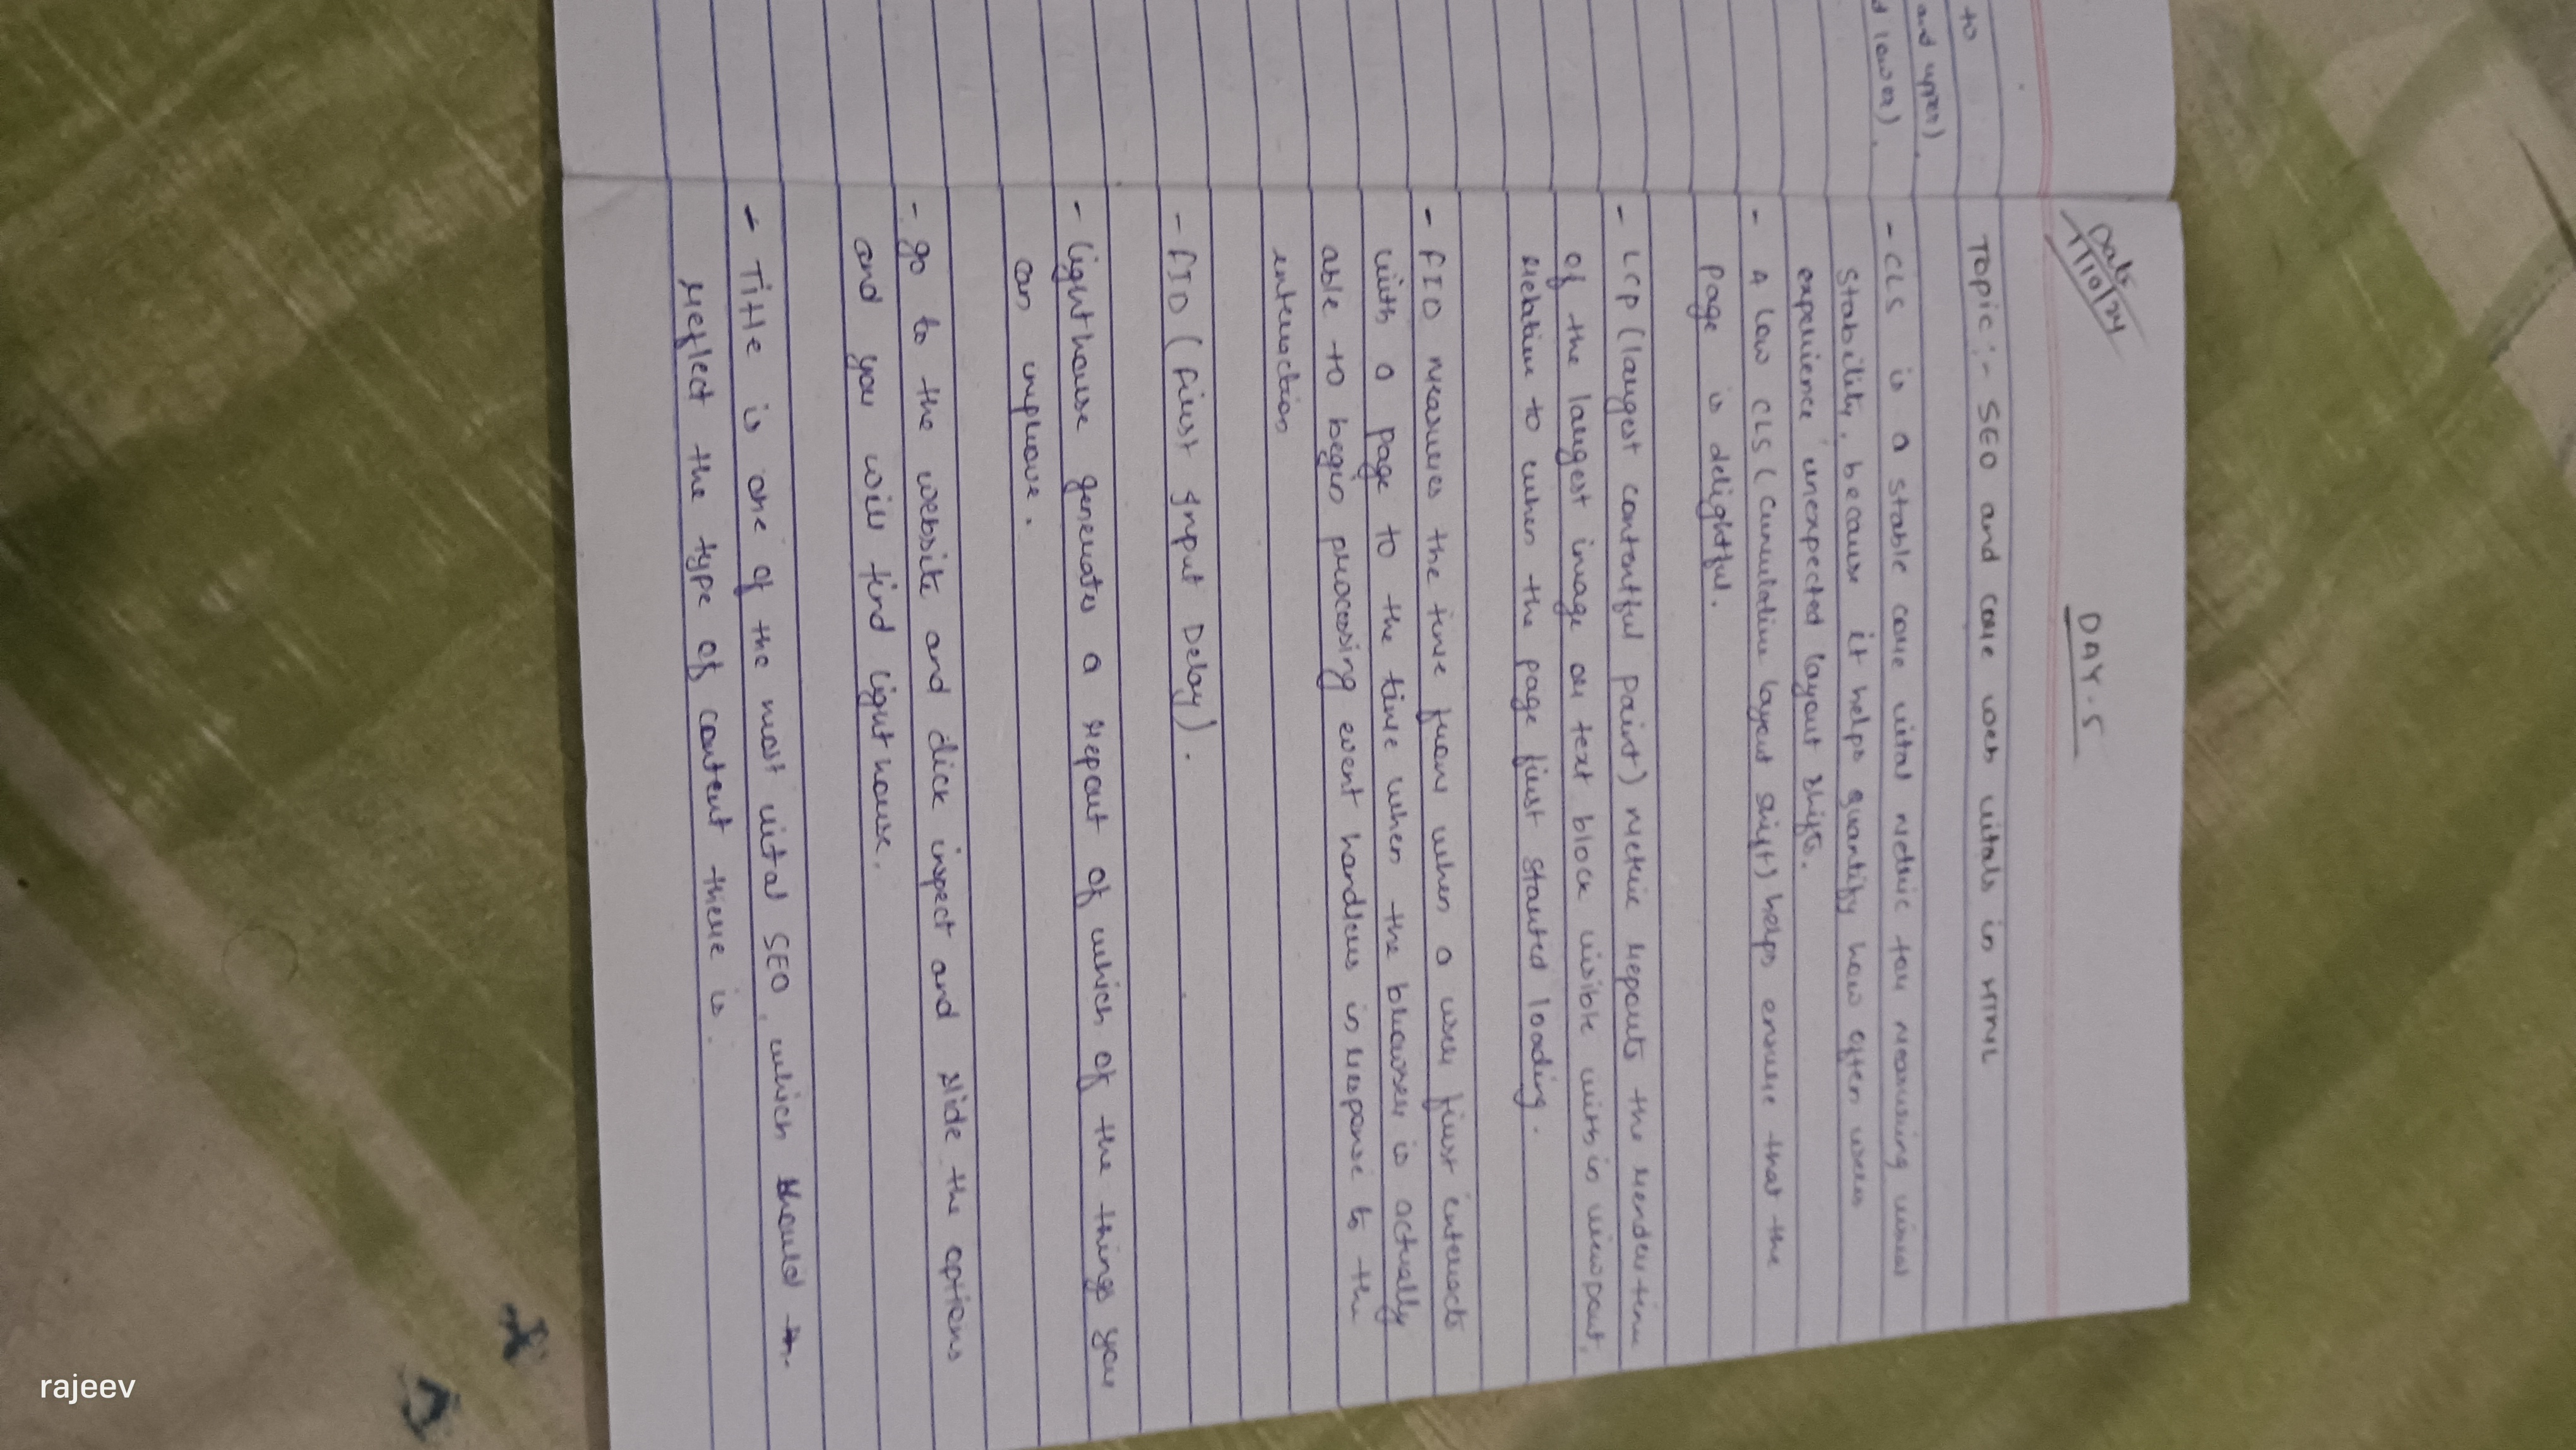 Date
1/10/24
DAY-5
to
and upper)
d lower).
Topic :- SEO and core web vitals in HTML
- CLS is a stable core vital metric for measuring visual
stability, because it helps quantify how often users
experience unexpected layout shifts.
- A low CLS (Cumulative layout shift) helps ensure that the
page is delightful.
- LCP (largest contentful paint) metric reports the render time
of the largest image or text block visible within viewport,
relative to when the page first started loading.
- FID measures the time from when a user first interacts
with a page to the time when the browser is actually
able to begin processing event handlers in response to the
interaction
- FID (First Input Delay).
- lighthouse generates a report of which of the things you
can improve.
- go to the website and click inspect and slide the options
and you will find lighthouse.
- Title is one of the most vital SEO, which should
reflect the type of content there is.
rajeev